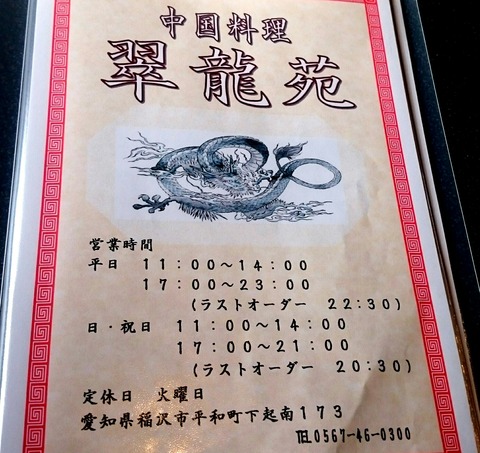 中国料理
翠龍苑
営業時間
平日　１１：００～１４：００
１７：００～２３：００
（ラストオーダー　２２：３０）
日・祝日　１１：００～１４：００
１７：００～２１：００
（ラストオーダー　２０：３０）
定休日　火曜日
愛知県稲沢市平和町下起南１７３
℡0567-46-0300